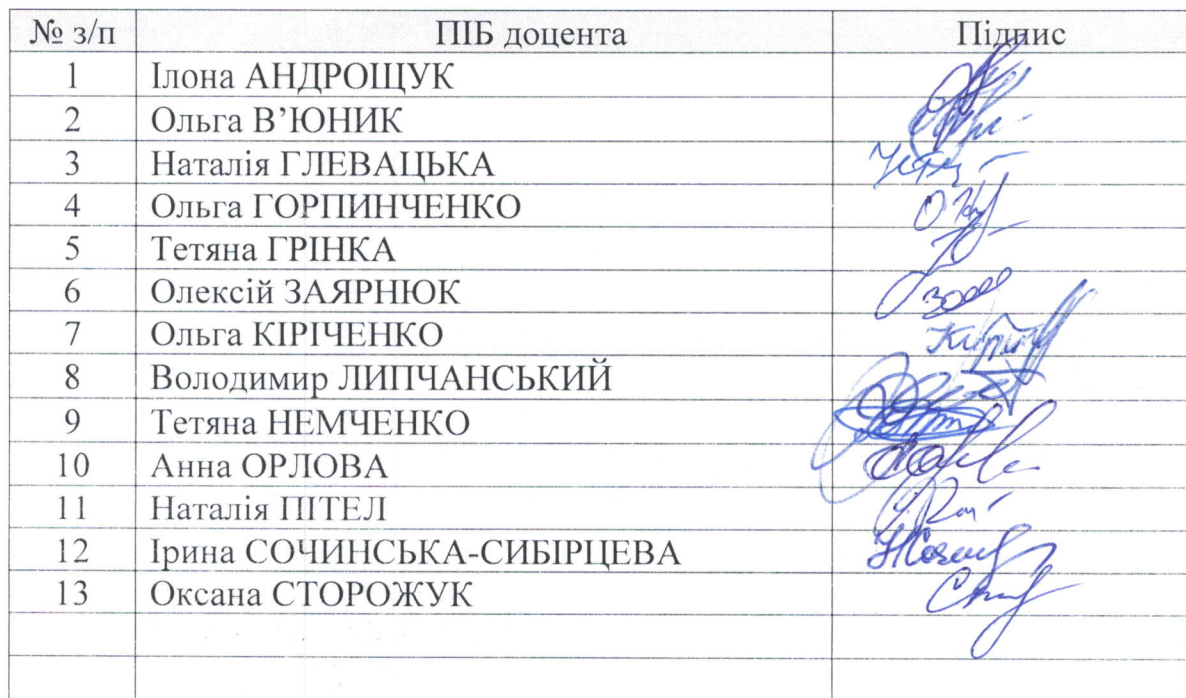 № з/п ПІБ доцента Підпис
1 Ілона АНДРОЩУК
2 Ольга В’ЮНИК
3 Наталія ГЛЕВАЦЬКА
4 Ольга ГОРПИНЧЕНКО
5 Тетяна ГРІНКА
6 Олексій ЗАЯРНЮК
7 Ольга КІРІЧЕНКО
8 Володимир ЛИПЧАНСЬКИЙ
9 Тетяна НЕМЧЕНКО
10 Анна ОРЛОВА
11 Наталія ПІТЕЛ
12 Ірина СОЧИНСЬКА-СИБІРЦЕВА
13 Оксана СТОРОЖУК